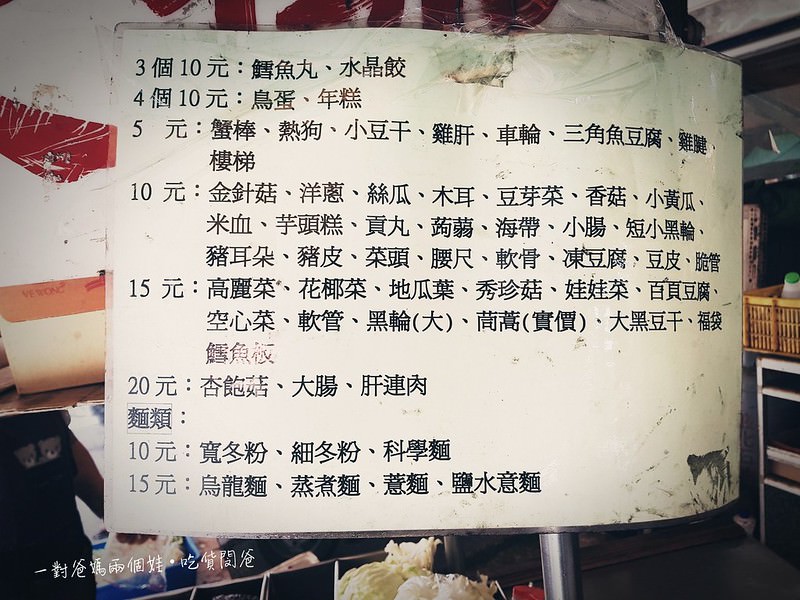 3個10元：鱈魚丸、水晶餃
4個10元：鳥蛋、年糕
5 元：蟹棒、熱狗、小豆干、雞肝、車輪、三角魚豆腐、雞腱、
樓梯
10 元：金針菇、洋蔥、絲瓜、木耳、豆芽菜、香菇、小黃瓜、
米血、芋頭糕、貢丸、蒟蒻、海帶、小腸、短小黑輪、
豬耳朵、豬皮、菜頭、腰尺、軟骨、凍豆腐、豆皮、脆管
15 元：高麗菜、花椰菜、地瓜葉、秀珍菇、娃娃菜、百頁豆腐、
空心菜、軟管、黑輪(大)、茼蒿(實價)、大黑豆干、福袋
鱈魚板
20元：杏飽菇、大腸、肝連肉
麵類：
10元：寬冬粉、細冬粉、科學麵
15元：烏龍麵、蒸煮麵、薏麵、鹽水意麵
一對爸媽兩個娃·吃貨闆爸